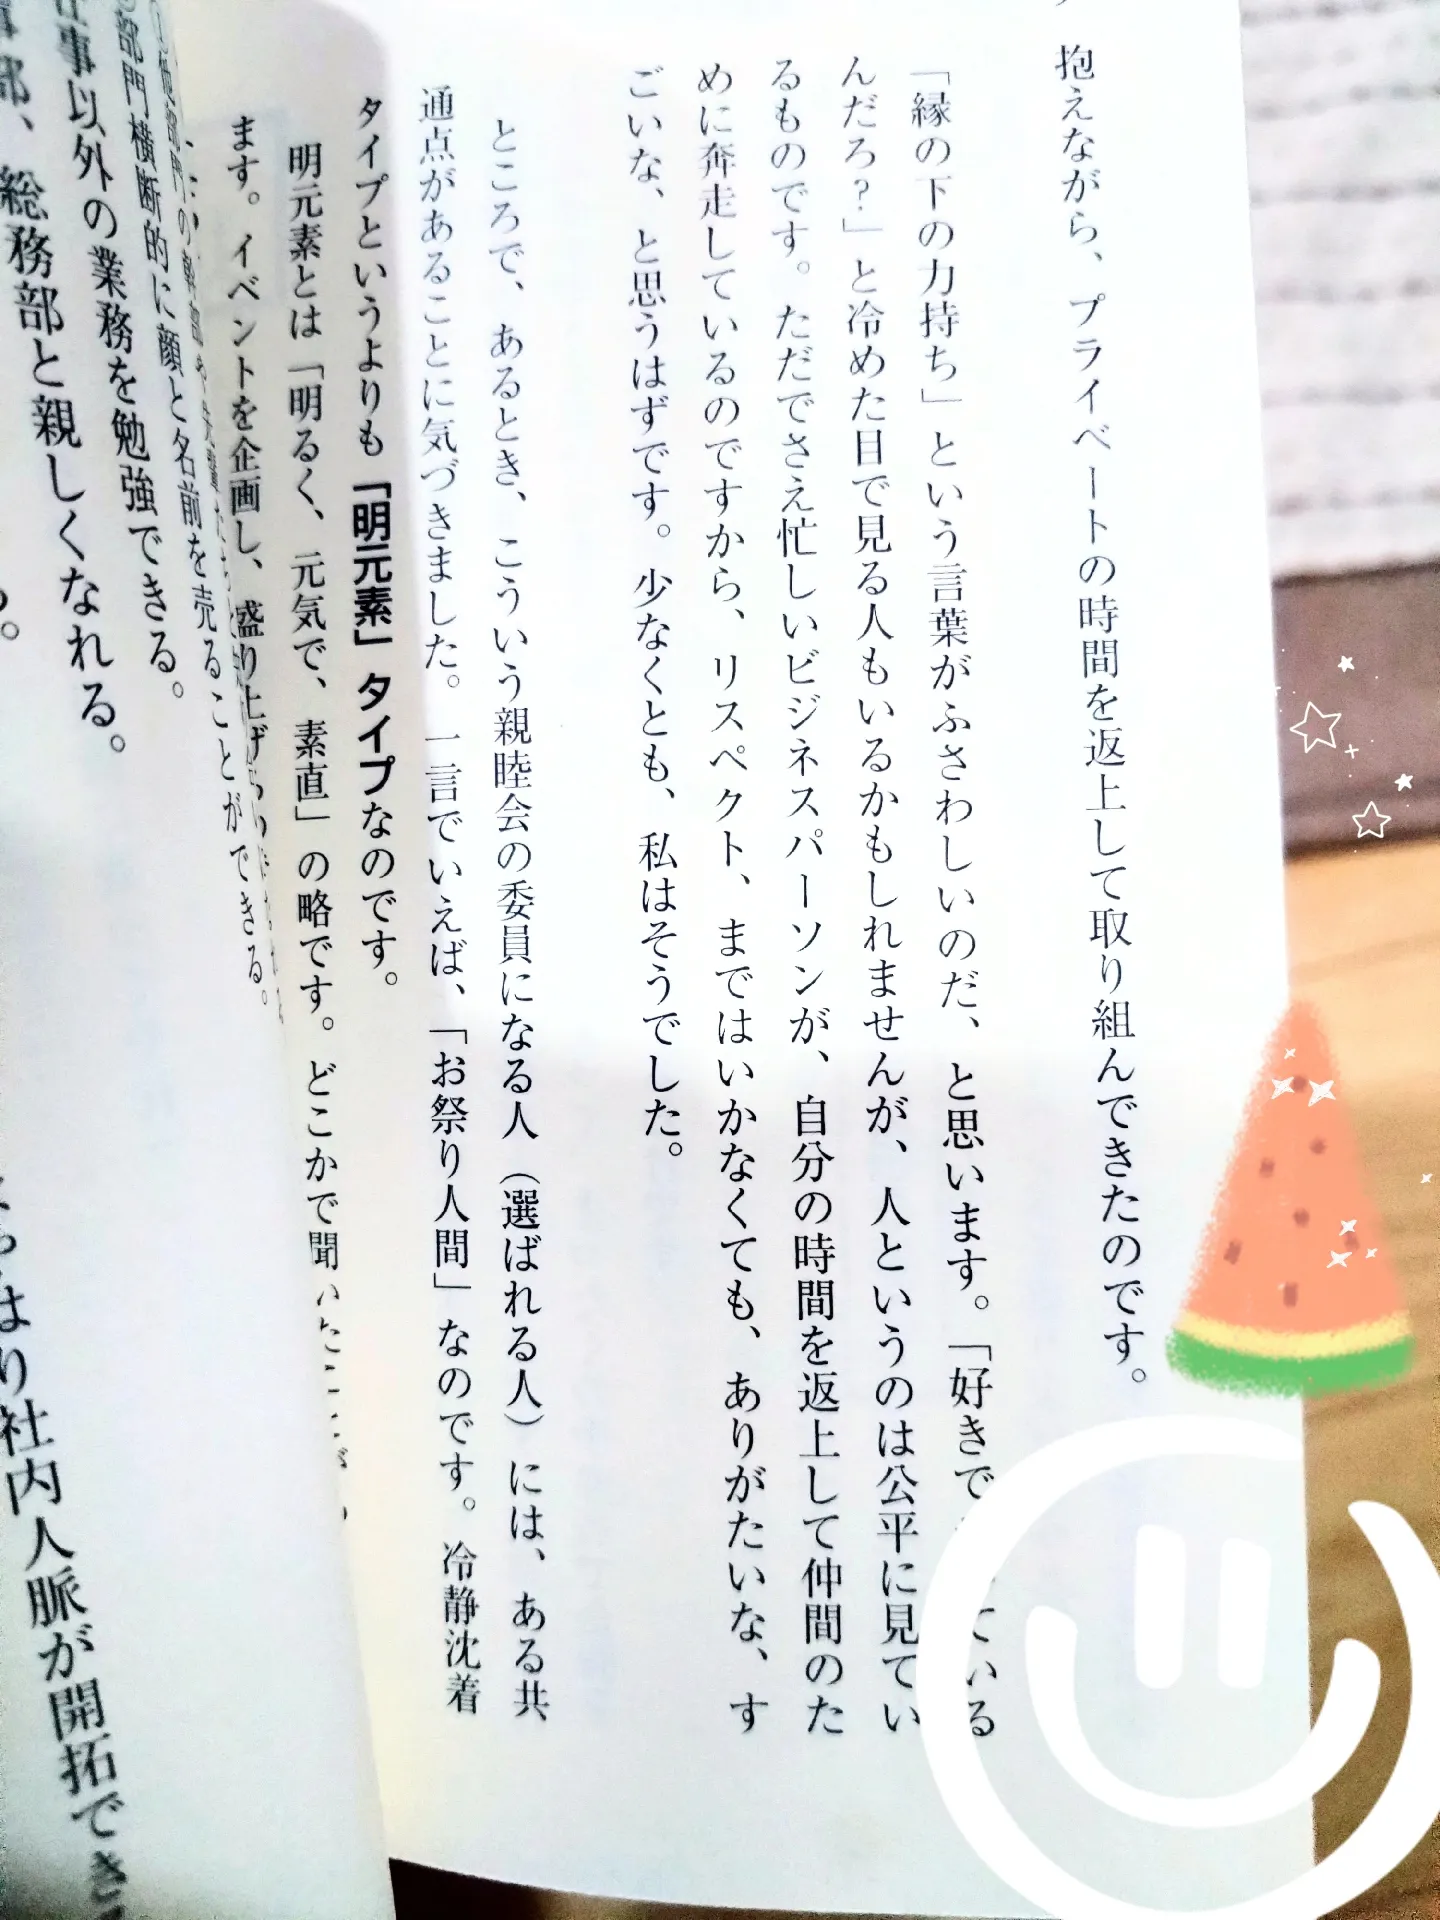 抱えながら、プライベートの時間を返上して取り組んできたのです。
「縁の下の力持ち」という言葉がふさわしいのだ、と思います。「好きで ている
んだろ?」と冷めた目で見る人もいるかもしれませんが、人というのは公平に見てい
るものです。ただでさえ忙しいビジネスパーソンが、自分の時間を返上して仲間のた
めに奔走しているのですから、リスペクト、まではいかなくても、ありがたいな、す
ごいな、と思うはずです。少なくとも、私はそうでした。
ところで、あるとき、こういう親睦会の委員になる人(選ばれる人)には、ある共
通点があることに気づきました。一言でいえば、「お祭り人間」なのです。冷静沈着
タイプというよりも「明元素」タイプなのです。
明元素とは「明るく、元気で、素直」の略です。どこかで聞いたことが
ます。イベントを企画し、盛り上げ
顔と名前を売ることができる。
部門横断的に
仕事以外の業務を勉強できる。
総務部と親しくなれる。
はり社内人脈が開拓でき